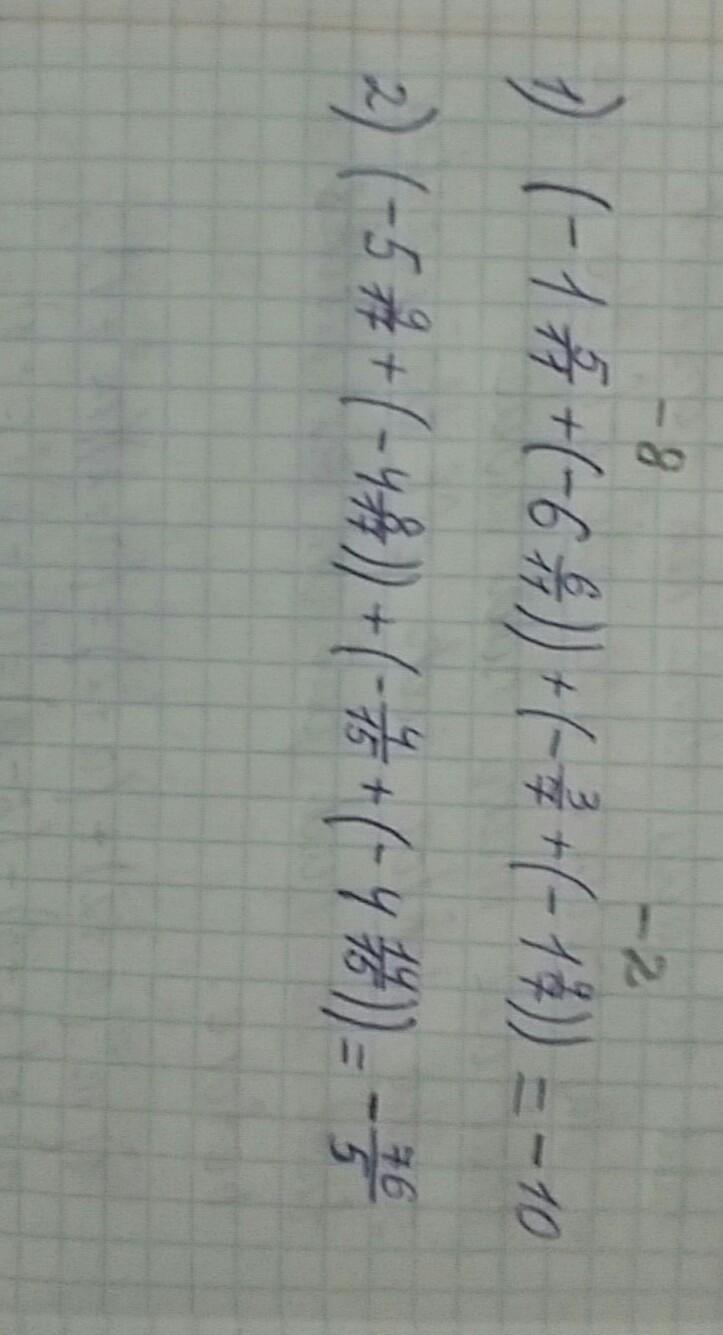 -8 -2
1) (-1 5/11 + (-6 6/11)) + (-3/7 + (-1 4/7)) = -10
2) (-5 9/17 + (-4 8/17)) + (-4/15 + (-4 14/15)) = -76/5